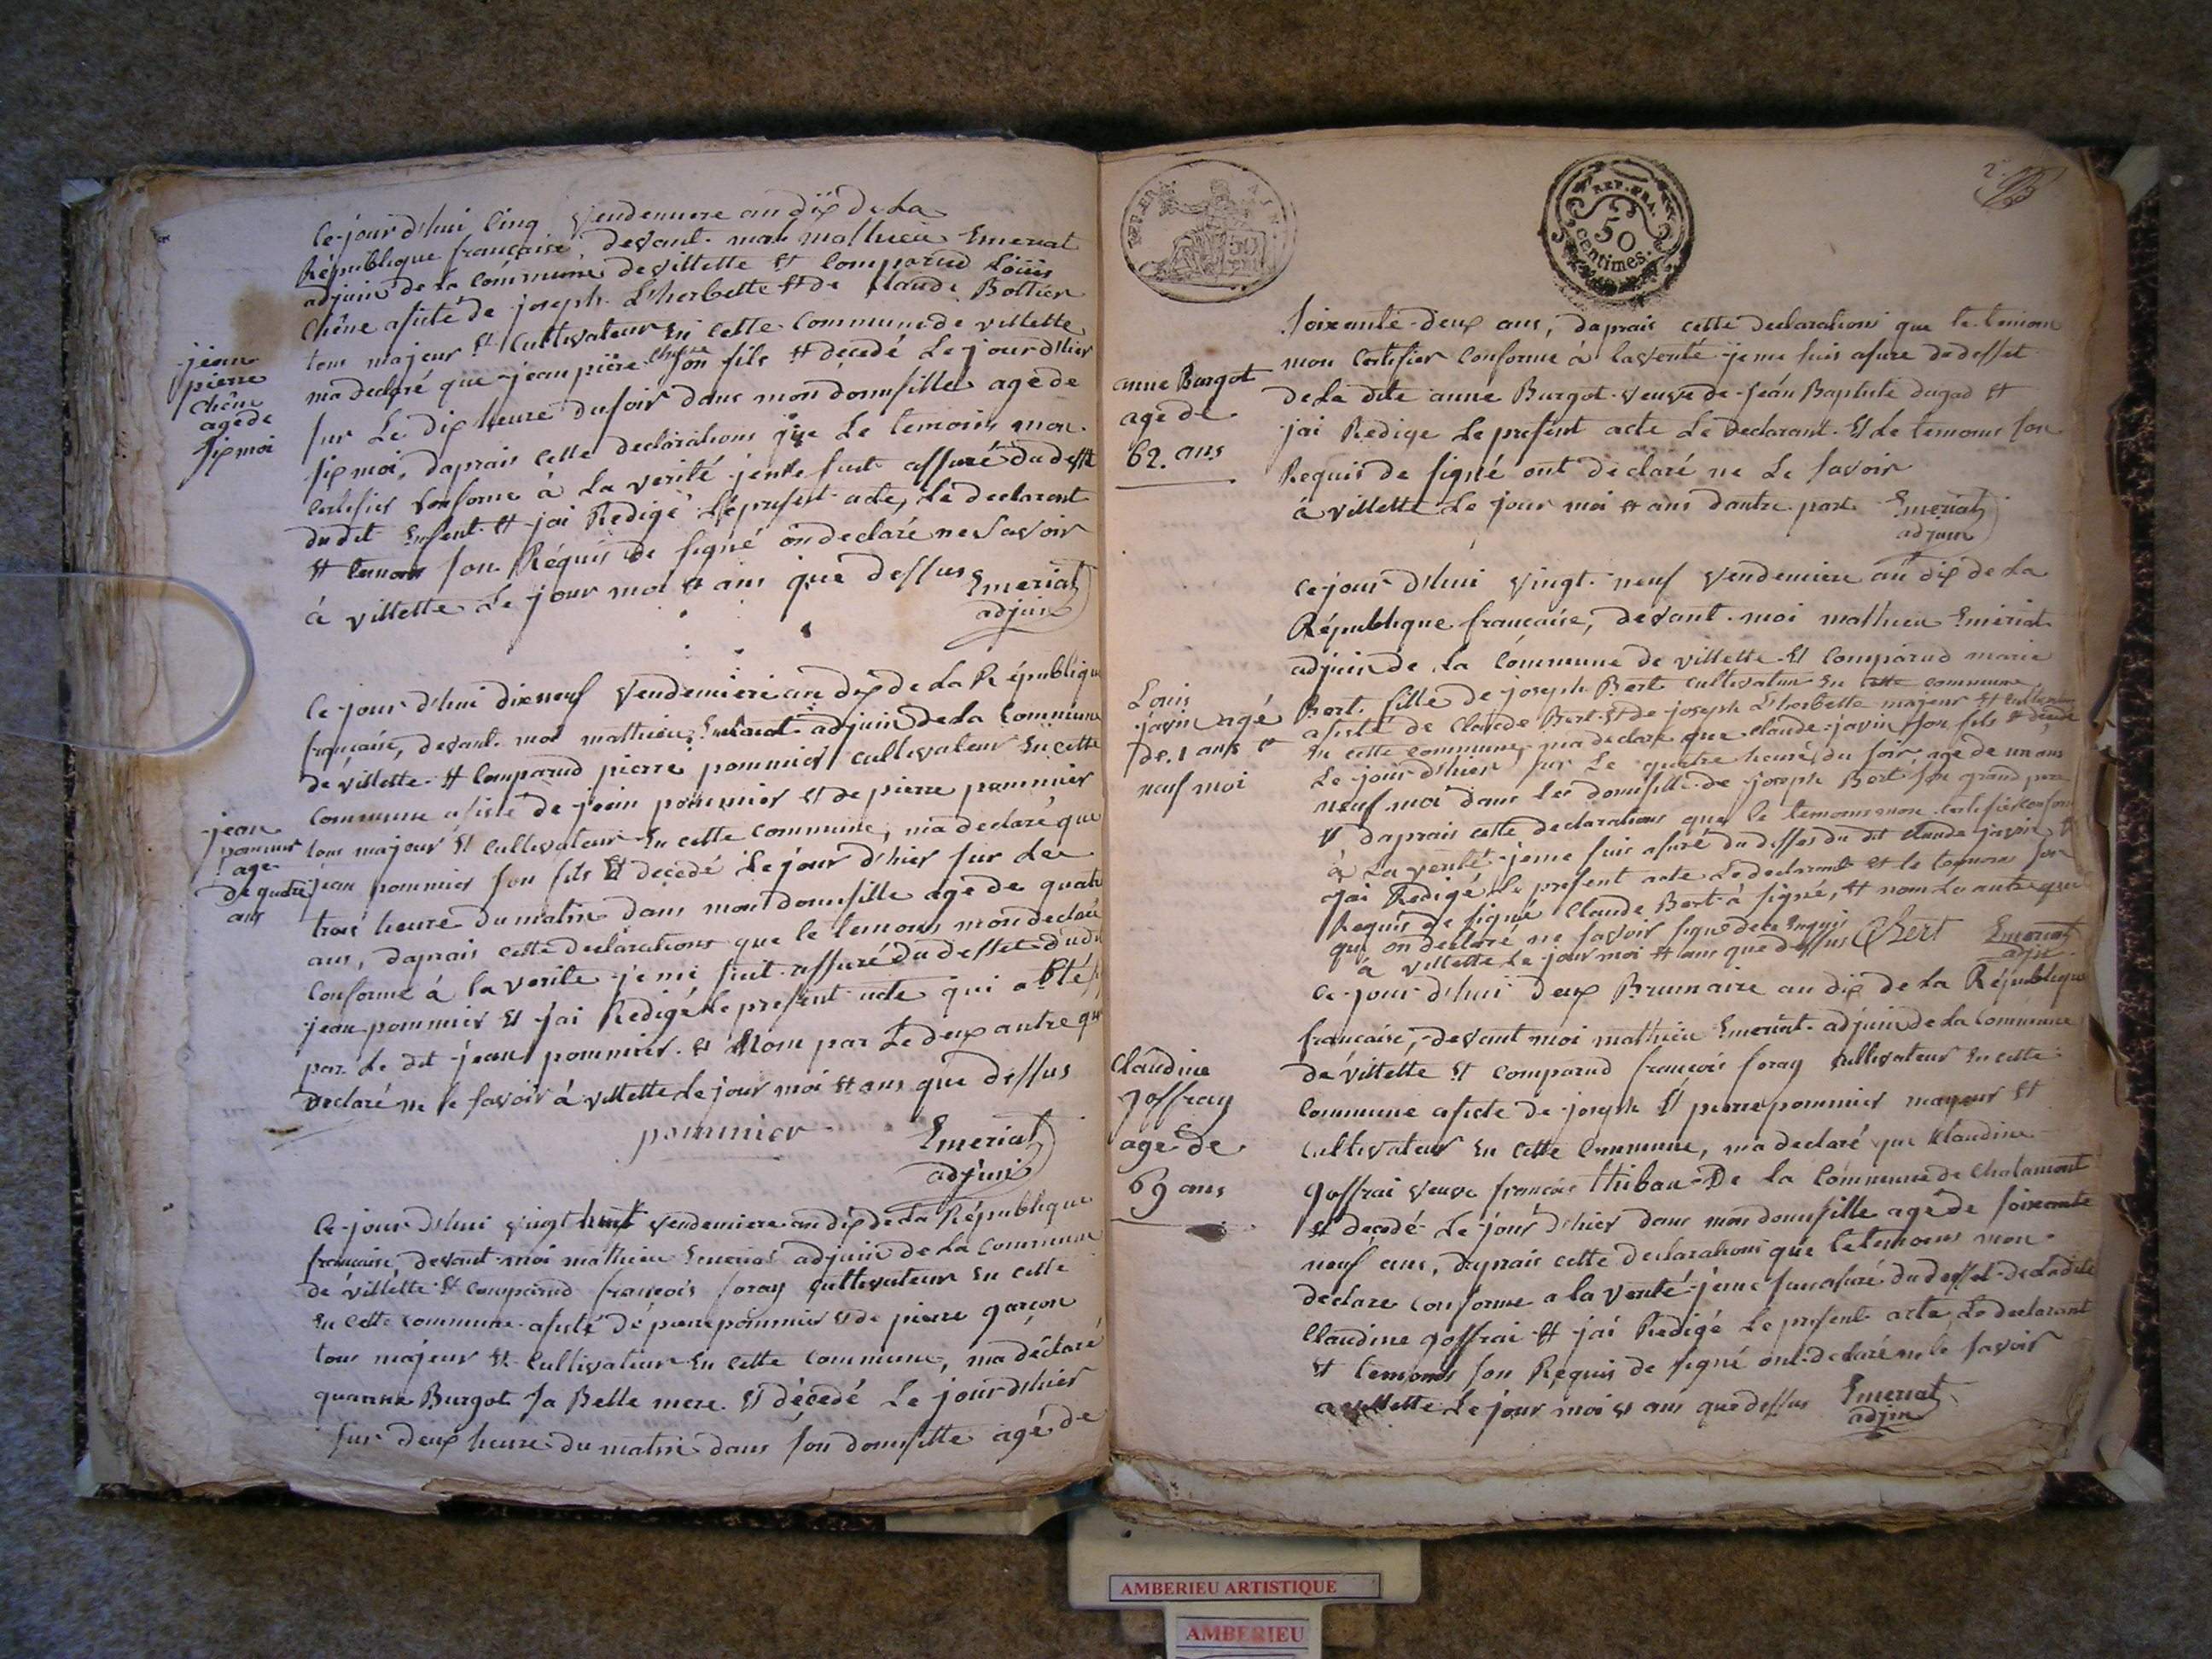 Ce jour d'hui Cinq Vendemiere an dix de La
République française devant moi mathieu Emeriat
adjuin de la Commune de villette Et Comparud Loüis
Chêne asisté de joseph L'herbette Et de Claude Bottier
tous majeur Et Cultivateur En cette Commune de villette
ma declaré que jean piere Chêne son fils Et decedé Le jour d'hier
sur Le dix heure du soir dans mon domisille age de
six moi, daprais cette declarations que Le temoins mon
Certifier Conforme à La verité je me suit assuré du desset
du dit Enfent Et jai Redigé Le present acte, Le declarant
Et temoins son Réquis de signé on declaré ne savoir
à villette Le jour moi et ans que dessus Emeriat
adjuin
jean
pierre
Chêne
age de
six moi
Ce jour d'hui dix neuf Vendemiere an dix de La République
française, devant moi mathieu Emeriat adjuin de La Commune
de villette Et Comparud pierre pommier cultivateur En cette
Commune asisté de jean pommier Et de pierre pommier
tous majeur Et Cultivateur En cette Commune, ma declaré que
jean pommier son fils Et decedé Le jour d'hier sur Le
trois heure du matin dans mon domisille age de quatre
ans, daprais cette declarations que le temoins mon declaré
Conforme à la verite je me suit assuré du desset du du
jean pommier Et jai Redigé Le present acte qui a Eté
par Le dit jean pommier Et Nom par Le deux autre qui
Declaré ne le savoir à villette Le jour moi Et ans que dessus
pommier Emeriat
adjuin
jean
pommier
age
de quatre
ans
Ce jour d'hui vingt huit vendemiere an dix de La République
française, devant moi mathieu Emeriat adjuin de La Commune
de villette Et Comparud françois foray Cultivateur En cette
En cette Commune asisté de pierre pommier Et de pierre garçon
tous majeur Et Cultivateur En cette Commune, ma déclaré
quanne Burgot sa Belle mere Et décedé Le jour d'hier
sur deux heure du matin dans son domisille agé de
REP. FRA.
50
centimes.
2
soixante deux ans, daprais cette declarations que le temoin
mon Certifier Conforme à la verité je me suis asure du desset
de La dite anne Burgot veuve de jean Baptiste dugad Et
jai Redige Le present acte Le declarant Et Le temoins son
Requis de signé ont declaré ne Le savoir
à villette Le jour moi et ans dautre part Emeriat
adjuin
anne Burgot
age de
62. ans
Ce jour d'hui vingt neuf vendemiere an dix de La
République française, devant moi mathieu Emeriat
adjuin de La Commune de villette Et Comparud marie
Bert fille de joseph Bert cultivateur En cette commune
asisté de Claude Bert Et de joseph L'herbette majeur Et Cultivateur
En cette commune, ma declaré que claude javin son fils Et decedé
Le jour d'hier sur Le quatre heure du soir, age de un ans
neuf moi dans Les domisille de joseph Bert son grand pere
Et daprais cette declarations que le temoins mon certifier conforme
à La verité je me suis asuré du desset du dit claude javin Et
jai Redigé Le present acte Le declarant Et le temoins son
Requis de signé Claude Bert à signé, Et nom La autre que
qui on declaré ne savoir signé de ce Enquis
à villette Le jour moi Et ans que dessus CBert Emeriat
adju
Louis
javin agé
de. 1 ans et
neuf moi
Ce jour d'hui deux Brumaire an dix de La République
française, devant moi mathieu Emeriat adjuin de La Commune
de villette Et comparud françois foray Cultivateur En cette
Commune asisté de joseph Et pierre pommier majeur Et
Cultivateur En cette Commune, ma declaré que Claudine
goffrai veuve françois thibau De la Commune de Chalamont
Et decedé Le jour d'hier dans mon domisille agé de soixante
neuf ans, daprais cette declarations que le temoins mon
declare conforme a la verité je me suis asuré du desset de La dite
Claudine goffrai Et jai Redigé Le present acte Le declarant
Et temoins son Requis de signé ont declaré ne le savoir
a villette Le jour moi Et ans que dessus Emeriat
adjuin
Claudine
goffray
age de
69 ans
AMBERIEU ARTISTIQUE
AMBERIEU